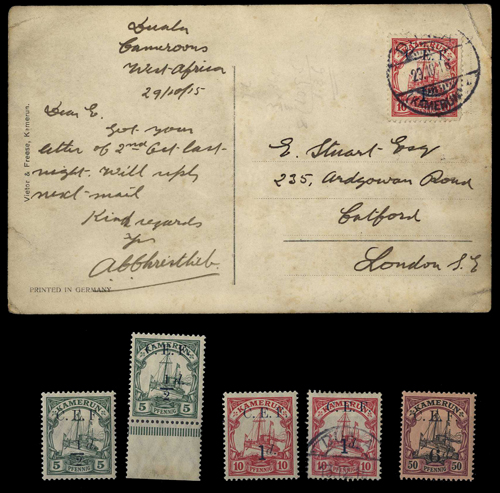 Duala
Cameroons
West-Africa
29/10/15
Dear E.
Got your
letter of 2nd Oct last-
night. Will reply
next-mail
Kind regards
Yrs
Vietor & Freese, Kamerun.
PRINTED IN GERMANY
C.E.F.
KAMERUN
10
E. Stuart Esq
235, Ardgowan Road
Catford
London S.E
KAMERUN
C.E.F.
1/2 d.
5 PFENNIG 5
KAMERUN
C.E.F.
1/2 d.
5 PFENNIG 5
KAMERUN
C.E.F.
1d.
10 PFENNIG 10
KAMERUN
C.E.F.
1d.
10 PFENNIG 10
KAMERUN
C.E.F.
6d.
50 PFENNIG 50